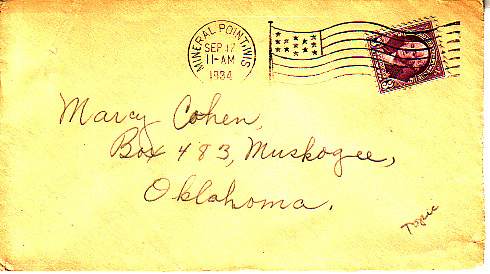 MINERAL POINT, WIS
SEP 17
11-AM
1934
Marcy Cohen,
Box 483, Muskogee,
Oklahoma.
Topic